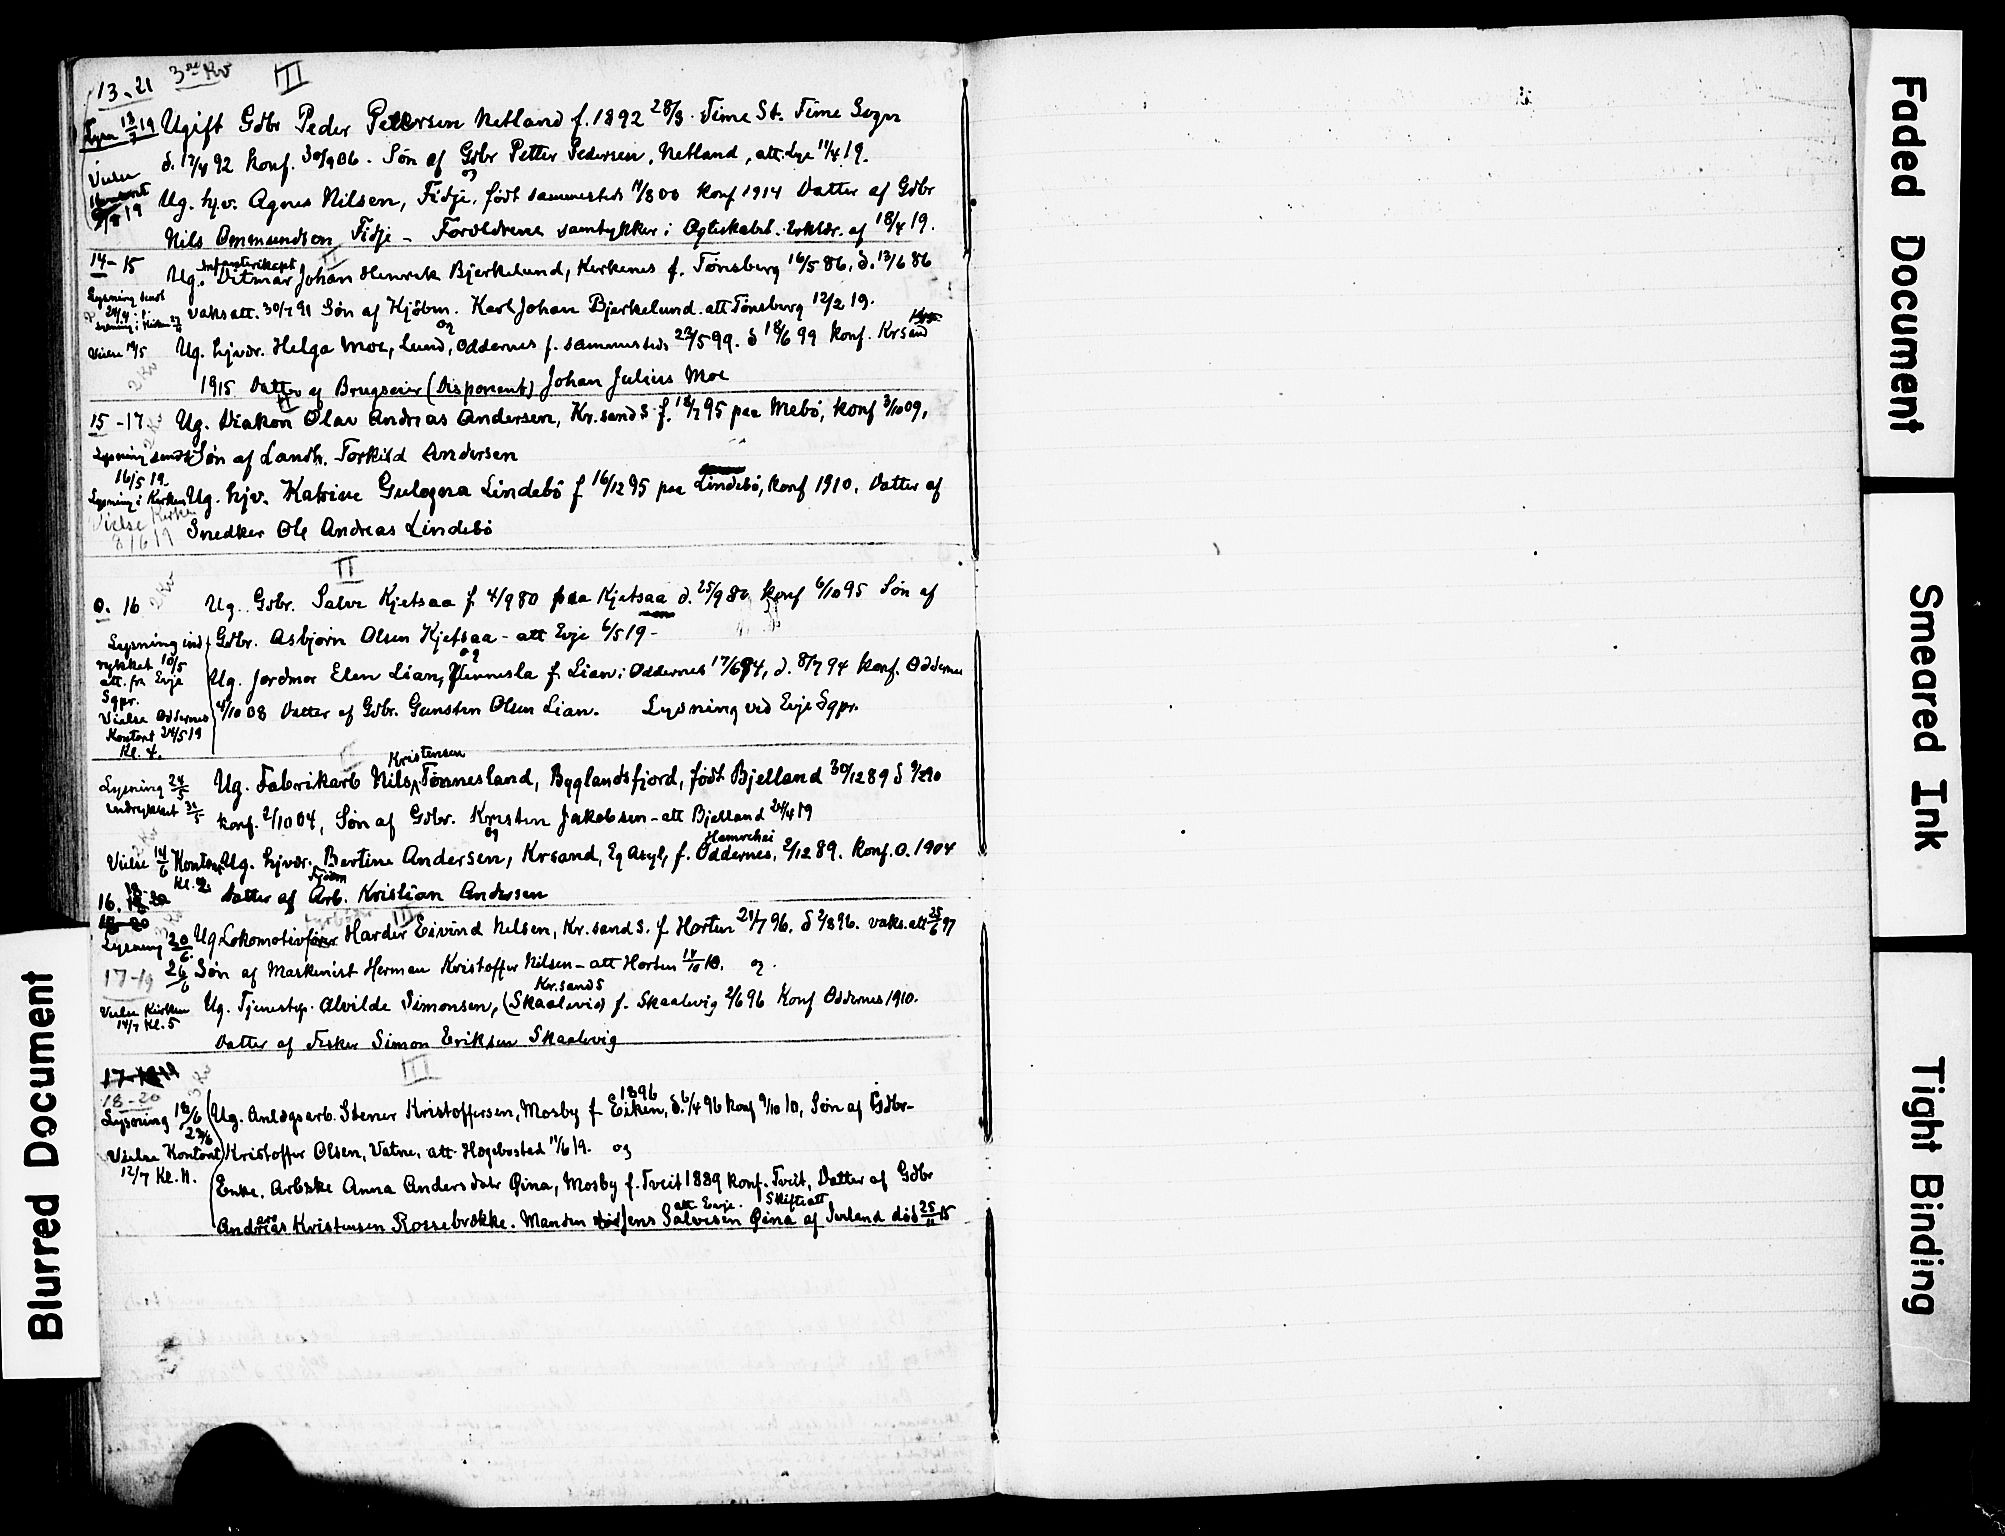 13-21 3die Kv III
Lysn 13/7 19 Ugift Gdbr Peder Pettersen Netland f. 1892 28/3. Time St. Time Sogn
d. 17/4 92 konf. 30/9 06. Søn af Gdbr Petter Pedersen, Netland, att. Lye 11/4 19.
og
Vielse
Ug. hj.v. Agnes Nilsen, Fidje, født sammesteds 11/8 00 konf 1914 Datter af Gdbr
9/8 19
Nils Ommundsen Fidje - Forældrene samtykker i Ægteskabet. Erklær. af 18/4 19.
14-15 II
Infanterikapt
Ug. Ditmar Johan Henrik Bjerkelund, Kirkenes f. Tønsberg 16/5 86, d. 13/6 86
Lysning sendt 24/4
vaks att. 30/7 91 Søn af Hjôbm. Karl Johan Bjerkelund. att Tønsberg 12/2 19.
og
Vielse 14/5
Ug. hjvær. Helga Moe, Lund, Oddernes f. sammesteds 22/5 99. d 18/6 99 konf. Krsand
2 Kv
1915 Datter af Brugseier (Disponent) Johan Julius Moe
II
15-17 Ug. Diakon Olav Andreas Andersen, Kr.sand S. f. 18/7 95 paa Mebö, konf 3/10 09,
2 Kv
Lysning sendt Søn af Landh. Torkild Andersen
16/5 19.
Lysning i Kirken Ug. hjv. Katrine Gulogora Lindebö f 16/12 95 paa Lindebö, konf 1910. Datter af
Vielse Kirken
8/6 19 Snedker Ole Andreas Lindebö
II
O. 16 2 Kv Ug. Gdbr. Salve Kjetsaa f. 4/9 80 paa Kjetsaa d. 25/9 80 konf 6/10 95 Søn af
Lysning ind Gdbr. Asbjørn Olsen Kjetsaa - att Evje 6/5 19 -
og
rykket 10/5
att. fra Evje
Ug. Jordmor Elen Lian, Vennesla f. Lian i Oddernes 17/6 94, d. 8/7 94 konf. Oddernes
Sgpr.
Vielse Oddernes 4/10 08 Datter af Gdbr. Gunsten Olsen Lian. Lysning ved Evje Sgpr.
Kontont 24/5 19
Kl. 4.
Kristensen
Lysning 24/5 Ug. Fabrikarb Nils Tønnesland, Byglandsfjord, født Bjelland 30/12 89 d 9/2 90
indrykket 31/5 konf. 2/10 04, Søn af Gdbr. Kristen Jakobsen - att Bjelland 24/4 19
og
Hamrehei
Vielse 14/6 Kontoret Ug. hjvær. Bertine Andersen, Krsand, Eg Asyl, f. Oddernes, 2/12 89. Konf. O. 1904
Kl. 2.
Datter af Arb. Kristian Andersen
16. 18-20
III
Lysning 20/6. Ug Lokomotivfører Harder Eivind Nilsen, Kr.sand S. f. Horten 29/7 96. d 2/8 96. vaks. att 25/6 97
17-19 26/6 Søn af Maskinist Herman Kristoffer Nilsen - att Horten 14/10 18. og.
Kr.sand S
Vielse Kirken Ug. Tjenestep. Alvilde Simonsen, (Skaalevig) f. Skaalevig 2/6 96 Konf Oddernes 1910.
14/7 Kl. 5
Datter af Fisker Simon Eriksen Skaalevig
III
18-20
1896
Lysning 18/6 Ug. Anlægsarb. Stener Kristoffersen, Mosby f Eiken, d. 6/4 96 konf 9/10 10, Søn af Gdbr-
23/6
Vielse Kontont Kristoffer Olsen, Vatne, att Hægebosted 11/6 19. og
12/7 Kl. 11.
Enke. Arbske Anna Andersdatr Øina, Mosby f. Tveit 1889 konf. Tveit, Datter af Gdbr
att Evje. Skifteatt
Andreas Kristensen Rossebrække. Manden Jens Salvesen Øina af Iveland död 25/11 15
Faded Document
Smeared Ink
Tight Binding
Blurred Document